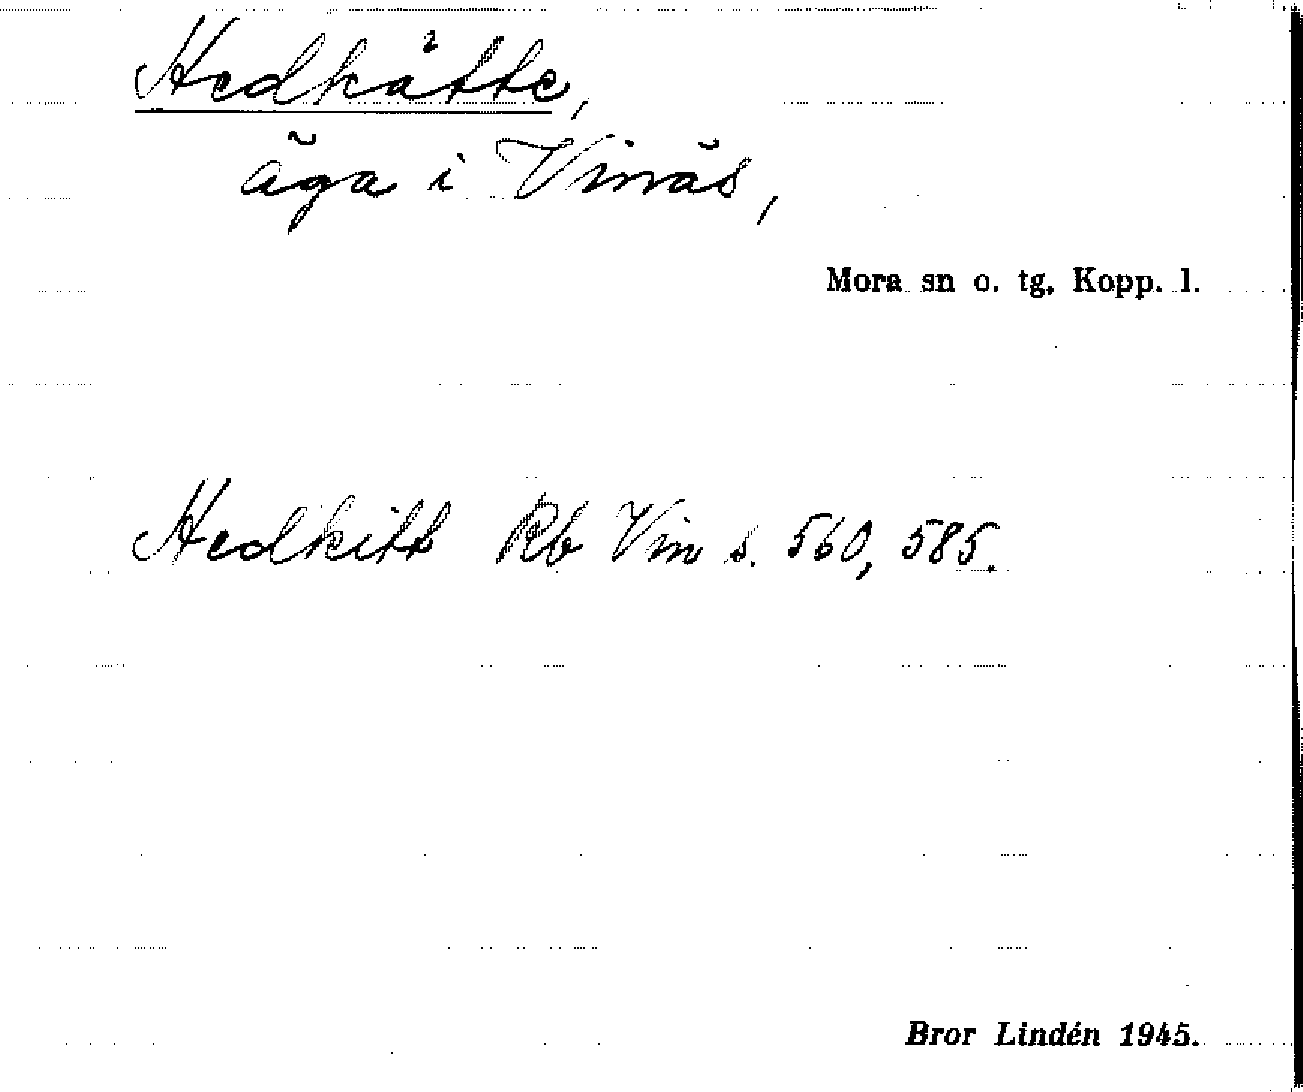 Hedkätte,
äga i Vinäs,
Mora sn o. tg. Kopp. l.
Hedkitt Rb Vin s. 560, 585.
Bror Lindén 1945.